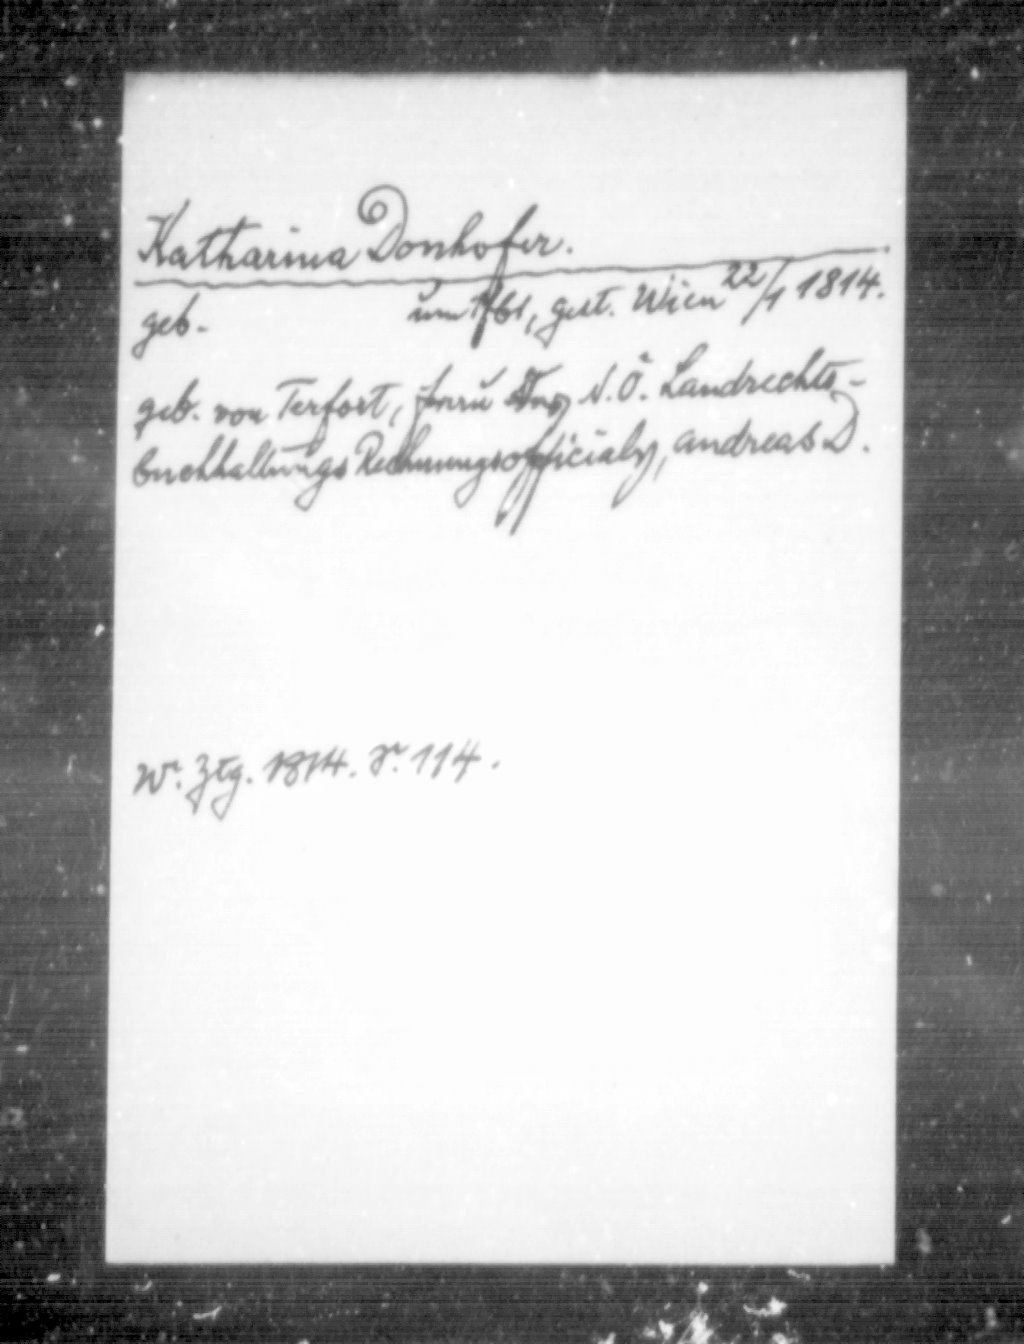 Katharina Donhofer.
geb. um 1761, gest. Wien 22/1 1814.
geb. von Terfort, Frau des N. Ö. Landrechts-
buchhaltungs Rechnungsofficials, Andreas D.
Wr. Ztg. 1814. S. 114.